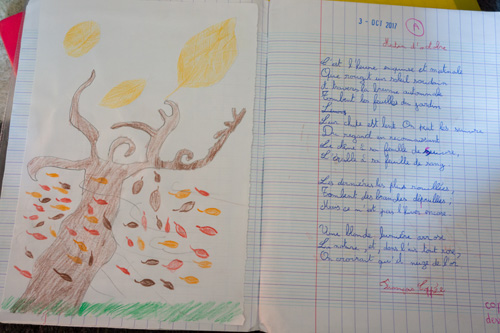 3 - OCT 2017
Matin d'octobre
C'est l'heure exquise et matinale
Que rougit un soleil soudain
A travers la brume automnale
Tombent les feuilles du jardin
Leur chute est lent. On peut les suivre
Du regard en reconnaissant
Le chêne à sa feuille de cuivre,
L'érable à sa feuille de sang
Les dernières les plus rouillées,
Tombent des branches dépouillées,
Mais ce n'est pas l'hiver encore
Une blonde lumière arrose
La nature, et dans l'air tout rose,
On croirait qu'il neige de l'or
François Coppée